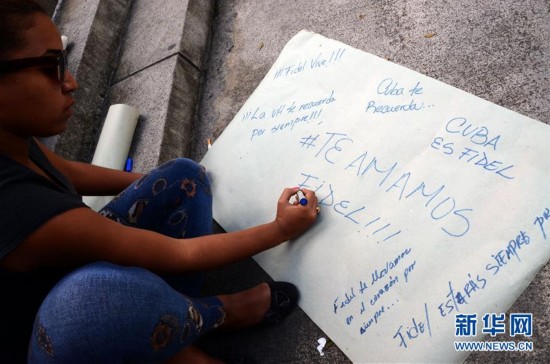 ¡¡¡Fidel Vive!!!
Cuba te
Recuerda...
¡¡¡La UH te recuerda
por siempre!!!
CUBA
ES FIDEL
#TE AMAMOS
FIDEL!!!
Fidel te llevamos
en el corazón por
siempre...
Fidel estarás siempre por
新华网
WWW.NEWS.CN